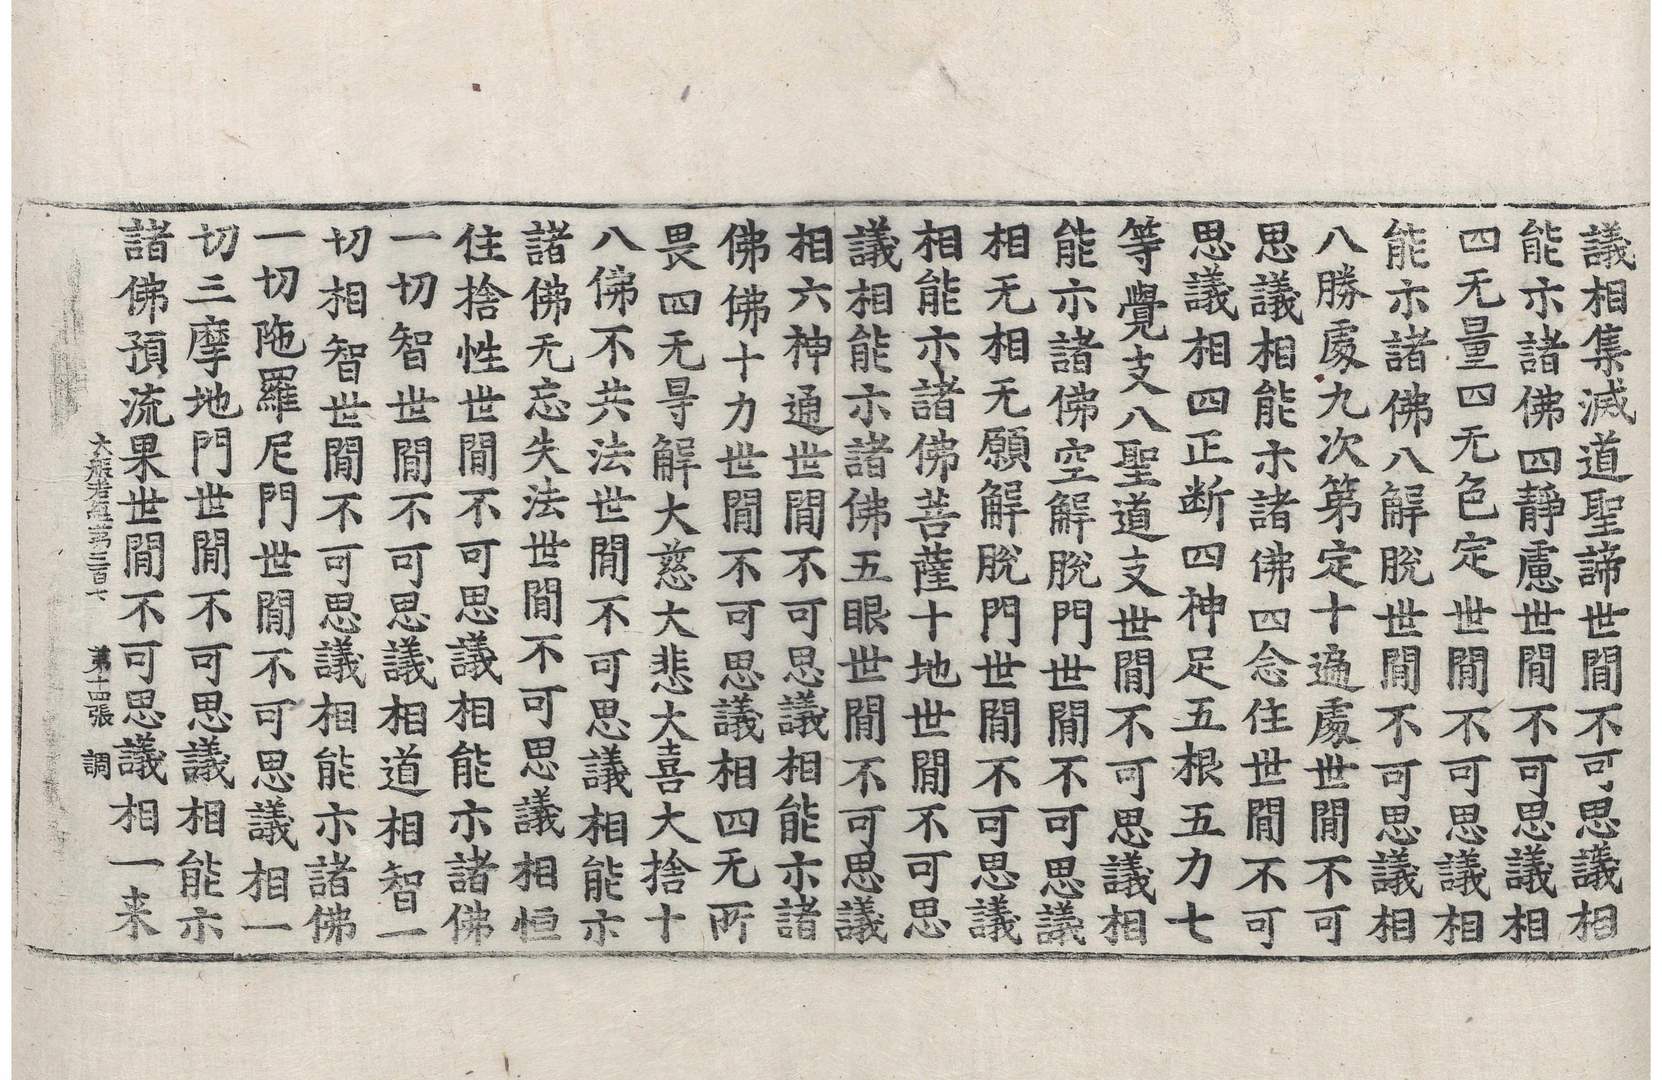 議相集滅道聖諦世間不可思議相
能示諸佛四靜慮世間不可思議相
四无量四无色定世間不可思議相
能示諸佛八解脫世間不可思議相
八勝處九次第定十遍處世間不可
思議相能示諸佛四念住世間不可
思議相四正断四神足五根五力七
等覺支八聖道支世間不可思議相
能示諸佛空解脫門世間不可思議
相无相无願解脫門世間不可思議
相能示諸佛菩薩十地世間不可思
議相能示諸佛五眼世間不可思議
相六神通世間不可思議相能示諸
佛佛十力世間不可思議相四无所
畏四无㝵解大慈大悲大喜大捨十
八佛不共法世間不可思議相能示
諸佛无忘失法世間不可思議相恒
住捨性世間不可思議相能示諸佛
一切智世間不可思議相道相智一
切相智世間不可思議相能示諸佛
一切陁羅尼門世間不可思議相一
切三摩地門世間不可思議相能示
諸佛預流果世間不可思議相一来
大般若經第三百七 第十四張 調